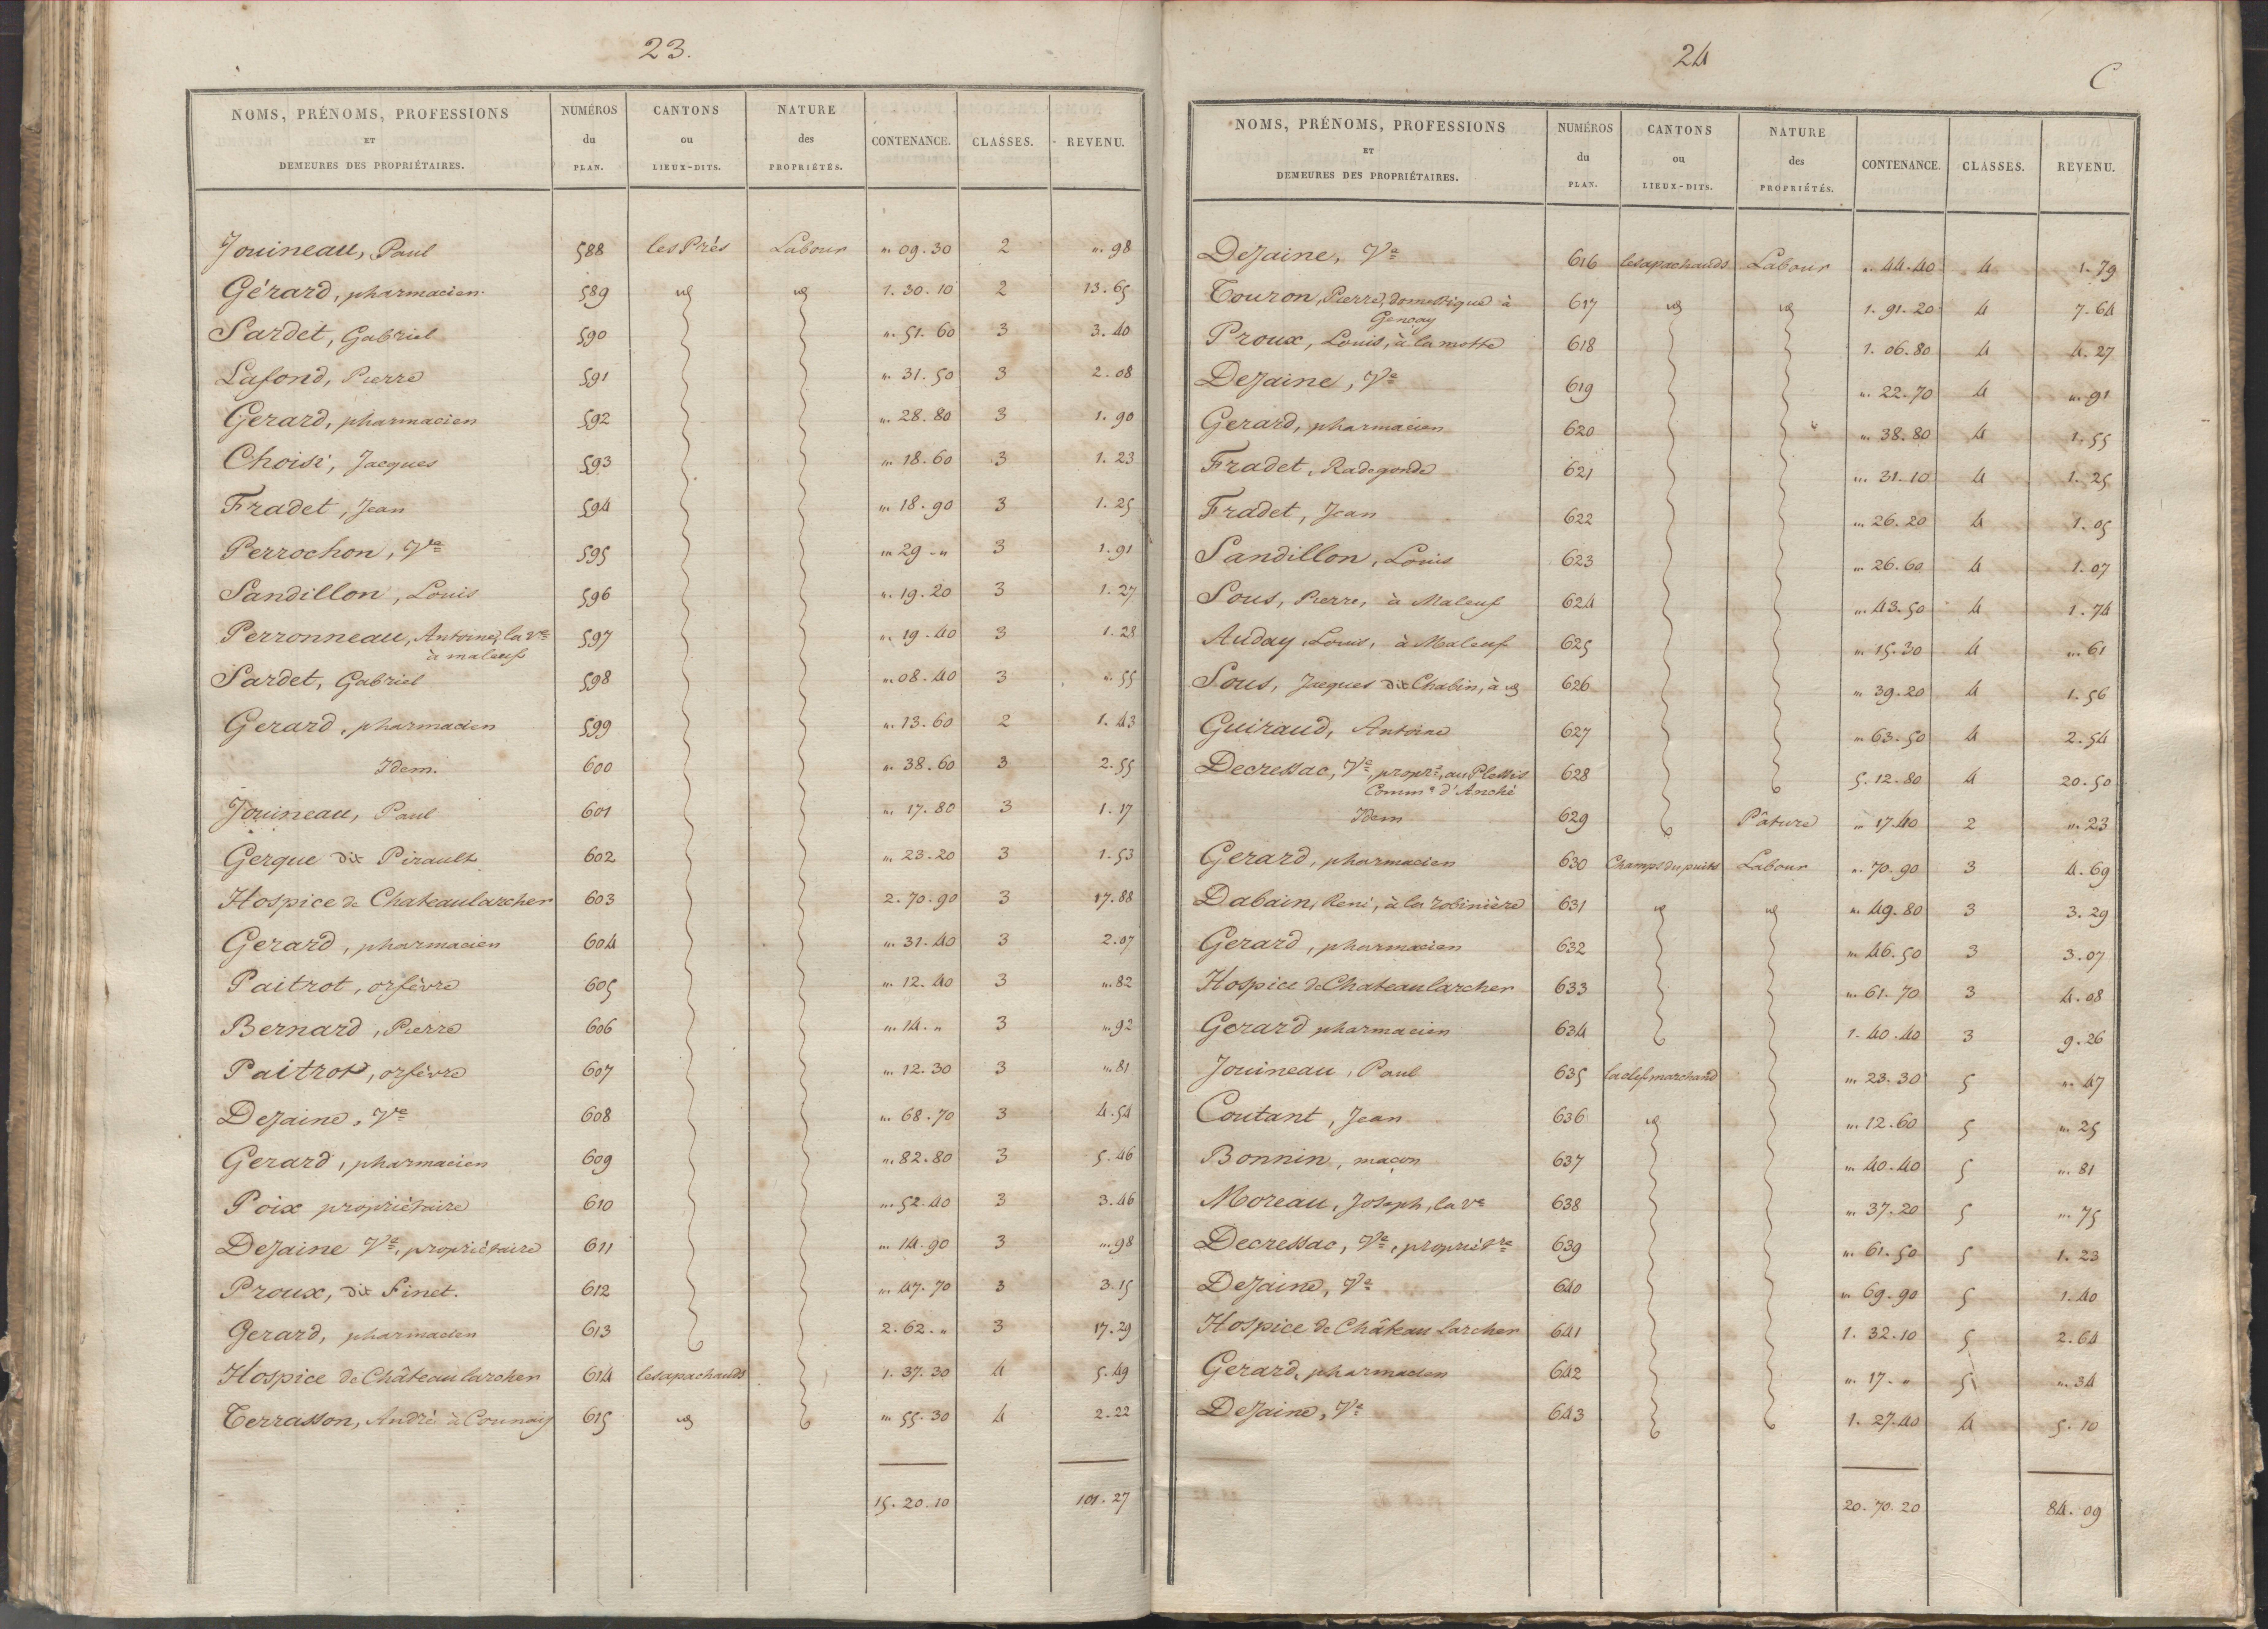 23.
NOMS, PRÉNOMS, PROFESSIONS ET DEMEURES DES PROPRIÉTAIRES. NUMÉROS du PLAN. CANTONS ou LIEUX-DITS. NATURE des PROPRIÉTÉS. CONTENANCE. CLASSES. REVENU.
Jouineau, Paul 588 les Prés Labour ". 09. 30 2 ". 98
Gérard, pharmacien. 589 id id 1. 30. 10 2 13. 65
Sardet, Gabriel 590 ". 51. 60 3 3. 40
Lafond, Pierre 591 ". 31. 50 3 2. 08
Gerard, pharmacien 592 ". 28. 80 3 1. 90
Choisi, Jacques 593 ". 18. 60 3 1. 23
Fradet, Jean 594 ". 18. 90 3 1. 25
Perrochon, Ve 595 " 29 - " 3 1. 91
Sandillon, Louis 596 ". 19. 20 3 1. 27
Perronneau, Antoine, la ve 597 ". 19. 40 3 1. 28
à maleuf
Sardet, Gabriel 598 ". 08. 40 3 ". 55
Gerard, pharmacien 599 ". 13. 60 2 1. 43
Idem. 600 ". 38. 60 3 2. 55
Jouineau, Paul 601 ". 17. 80 3 1. 17
Gerque dit Pirault 602 ". 23. 20 3 1. 53
Hospice de Chateaularcher 603 2. 70. 90 3 17. 88
Gerard, pharmacien 604 ". 31. 40 3 2. 07
Paitrot, orfèvre 605 ". 12. 40 3 ". 82
Bernard, Pierre 606 ". 14. " 3 ". 92
Paitrot, orfèvre 607 ". 12. 30 3 ". 81
Dezaine, Ve 608 ". 68. 70 3 4. 54
Gerard, pharmacien 609 ". 82. 80 3 5. 46
Poix propriétaire 610 ". 52. 40 3 3. 46
Dezaine Ve, propriétaire 611 ". 14. 90 3 ". 98
Proux, dit Finet. 612 ". 47. 70 3 3. 15
Gerard, pharmacien 613 2. 62. " 3 17. 29
Hospice de Châteaularcher 614 lesapachauds 1. 37. 30 4 5. 49
Terrasson, André à Counay 615 id ". 55. 30 4 2. 22
15. 20. 10 101. 27
24
C
NOMS, PRÉNOMS, PROFESSIONS ET DEMEURES DES PROPRIÉTAIRES. NUMÉROS du PLAN. CANTONS ou LIEUX-DITS. NATURE des PROPRIÉTÉS. CONTENANCE. CLASSES. REVENU.
Dezaine, Ve 616 lesapachauds Labour ". 44. 40 4 1. 79
Touron, Pierre, domestique à 617 id id 1. 91. 20 4 7. 64
Gençay
Proux, Louis, à la motte 618 1. 06. 80 4 4. 27
Dezaine, Ve 619 ". 22. 70 4 ". 91
Gerard, pharmacien 620 ". 38. 80 4 1. 55
Fradet, Radegonde 621 ". 31. 10 4 1. 25
Fradet, Jean 622 ". 26. 20 4 1. 05
Sandillon, Louis 623 ". 26. 60 4 1. 07
Sous, Pierre, à Maleuf 624 ". 43. 50 4 1. 74
Auday Louis, à Maleuf 625 ". 15. 30 4 ". 61
Sous, Jacques dit Chabin, à id 626 ". 39. 20 4 1. 56
Guiraud, Antoine 627 ". 63. 50 4 2. 54
Decressac, Ve, propre, au Plessis 628 5. 12. 80 4 20. 50
Comme d'Anché
Idem 629 Pâture ". 17. 40 2 ". 23
Gerard, pharmacien 630 Champs du puits Labour ". 70. 90 3 4. 69
Dabain, René, à la robinière 631 id id ". 49. 80 3 3. 29
Gerard, pharmacien 632 ". 46. 50 3 3. 07
Hospice de Chateaularcher 633 ". 61. 70 3 4. 08
Gerard pharmacien 634 1. 40. 40 3 9. 26
Jouineau, Paul 635 laclef marchand ". 23. 30 5 ". 47
Coutant, Jean 636 id ". 12. 60 5 ". 25
Bonnin, maçon 637 ". 40. 40 5 ". 81
Moreau, Joseph, la ve 638 ". 37. 20 5 ". 75
Decressac, Ve, propriétre 639 ". 61. 50 5 1. 23
Dezaine, Ve 640 ". 69. 90 5 1. 40
Hospice de Château Larcher 641 1. 32. 10 5 2. 64
Gerard, pharmacien 642 ". 17. " 5 ". 34
Dezaine, Ve 643 1. 27. 40 4 5. 10
20. 70. 20 84. 09